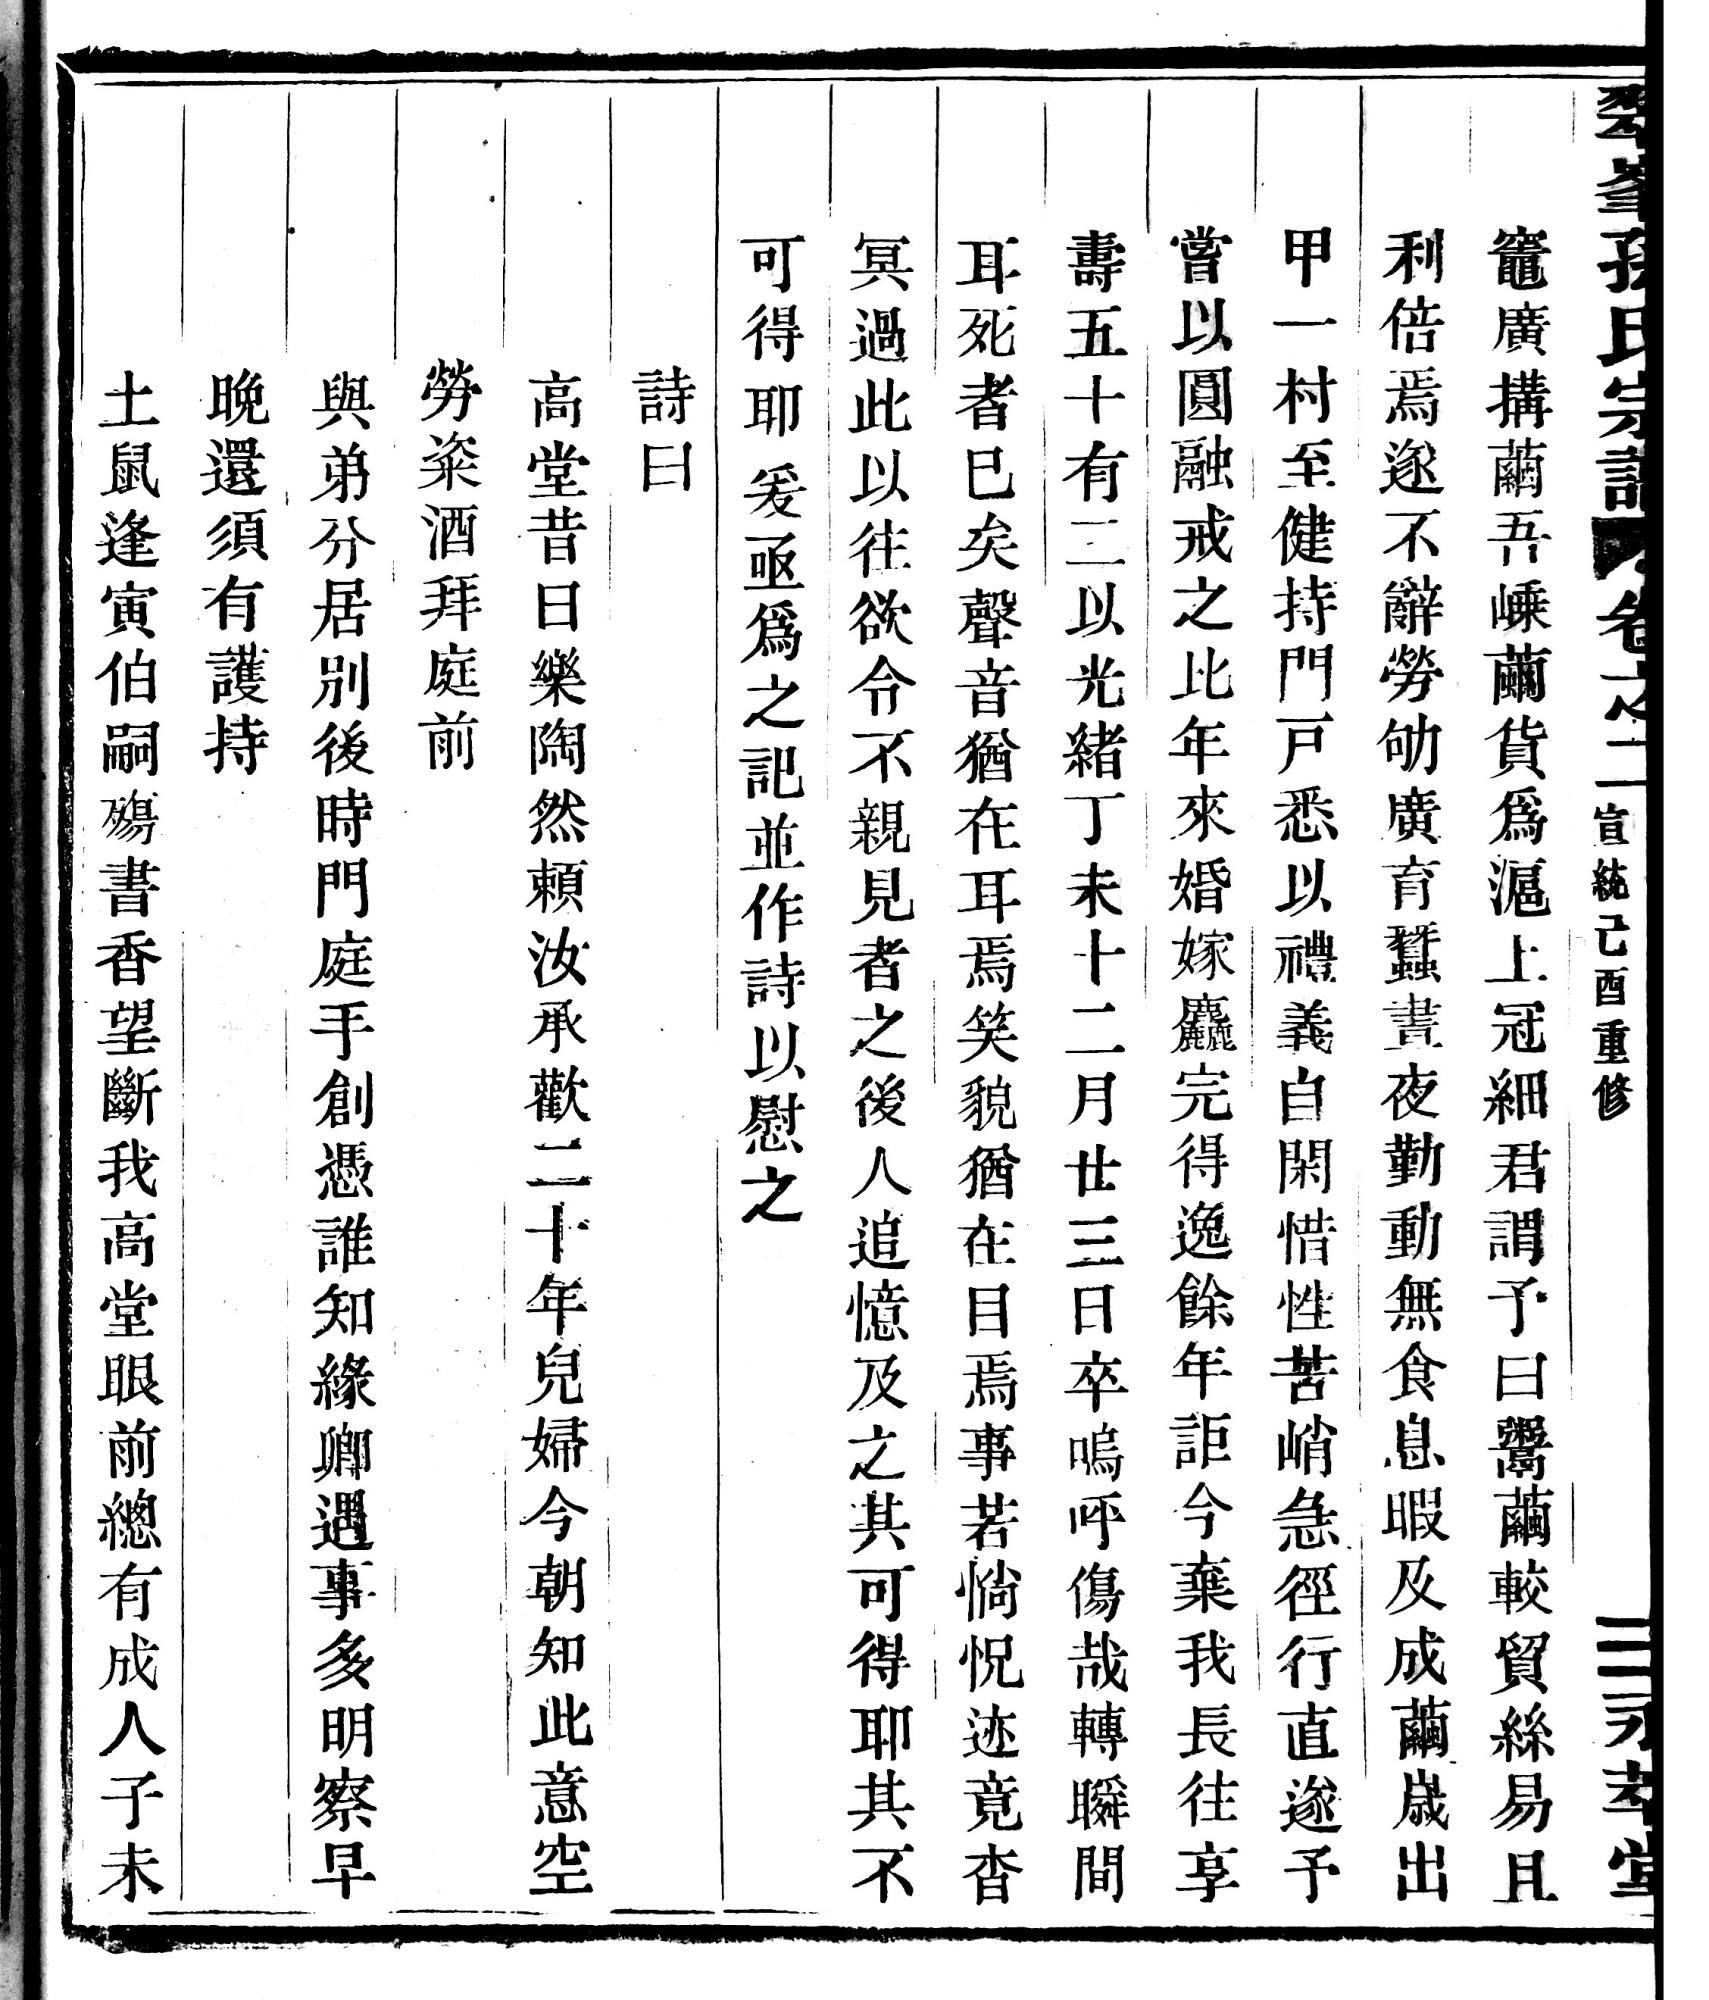 翠峯孫氏宗譜 卷之二 宣統己酉重修 三 永萃堂
竈廣搆繭吾嵊繭貨爲滬上冠細君謂予曰鬻繭較貿絲易且
利倍焉遂不辭勞劬廣育蠶晝夜勤動無食息暇及成繭歲出
甲一村至健持門戸悉以禮義自閑惜性苦峭急徑行直遂予
嘗以圓融戒之比年來婚嫁麤完得逸餘年詎今棄我長往享
壽五十有二以光緒丁未十二月廿三日卒嗚呼傷哉轉瞬間
耳死者已矣聲音猶在耳焉笑貌猶在目焉事若惝怳迹竟杳
冥過此以往欲令不親見者之後人追憶及之其可得耶其不
可得耶爰亟爲之記並作詩以慰之
詩曰
高堂昔日樂陶然頼汝承歡二十年兒婦今朝知此意空
勞粢酒拜庭前
與弟分居別後時門庭手創憑誰知緣卿遇事多明察早
晚還須有護持
土鼠逢寅伯嗣殤書香望斷我高堂眼前總有成人子未